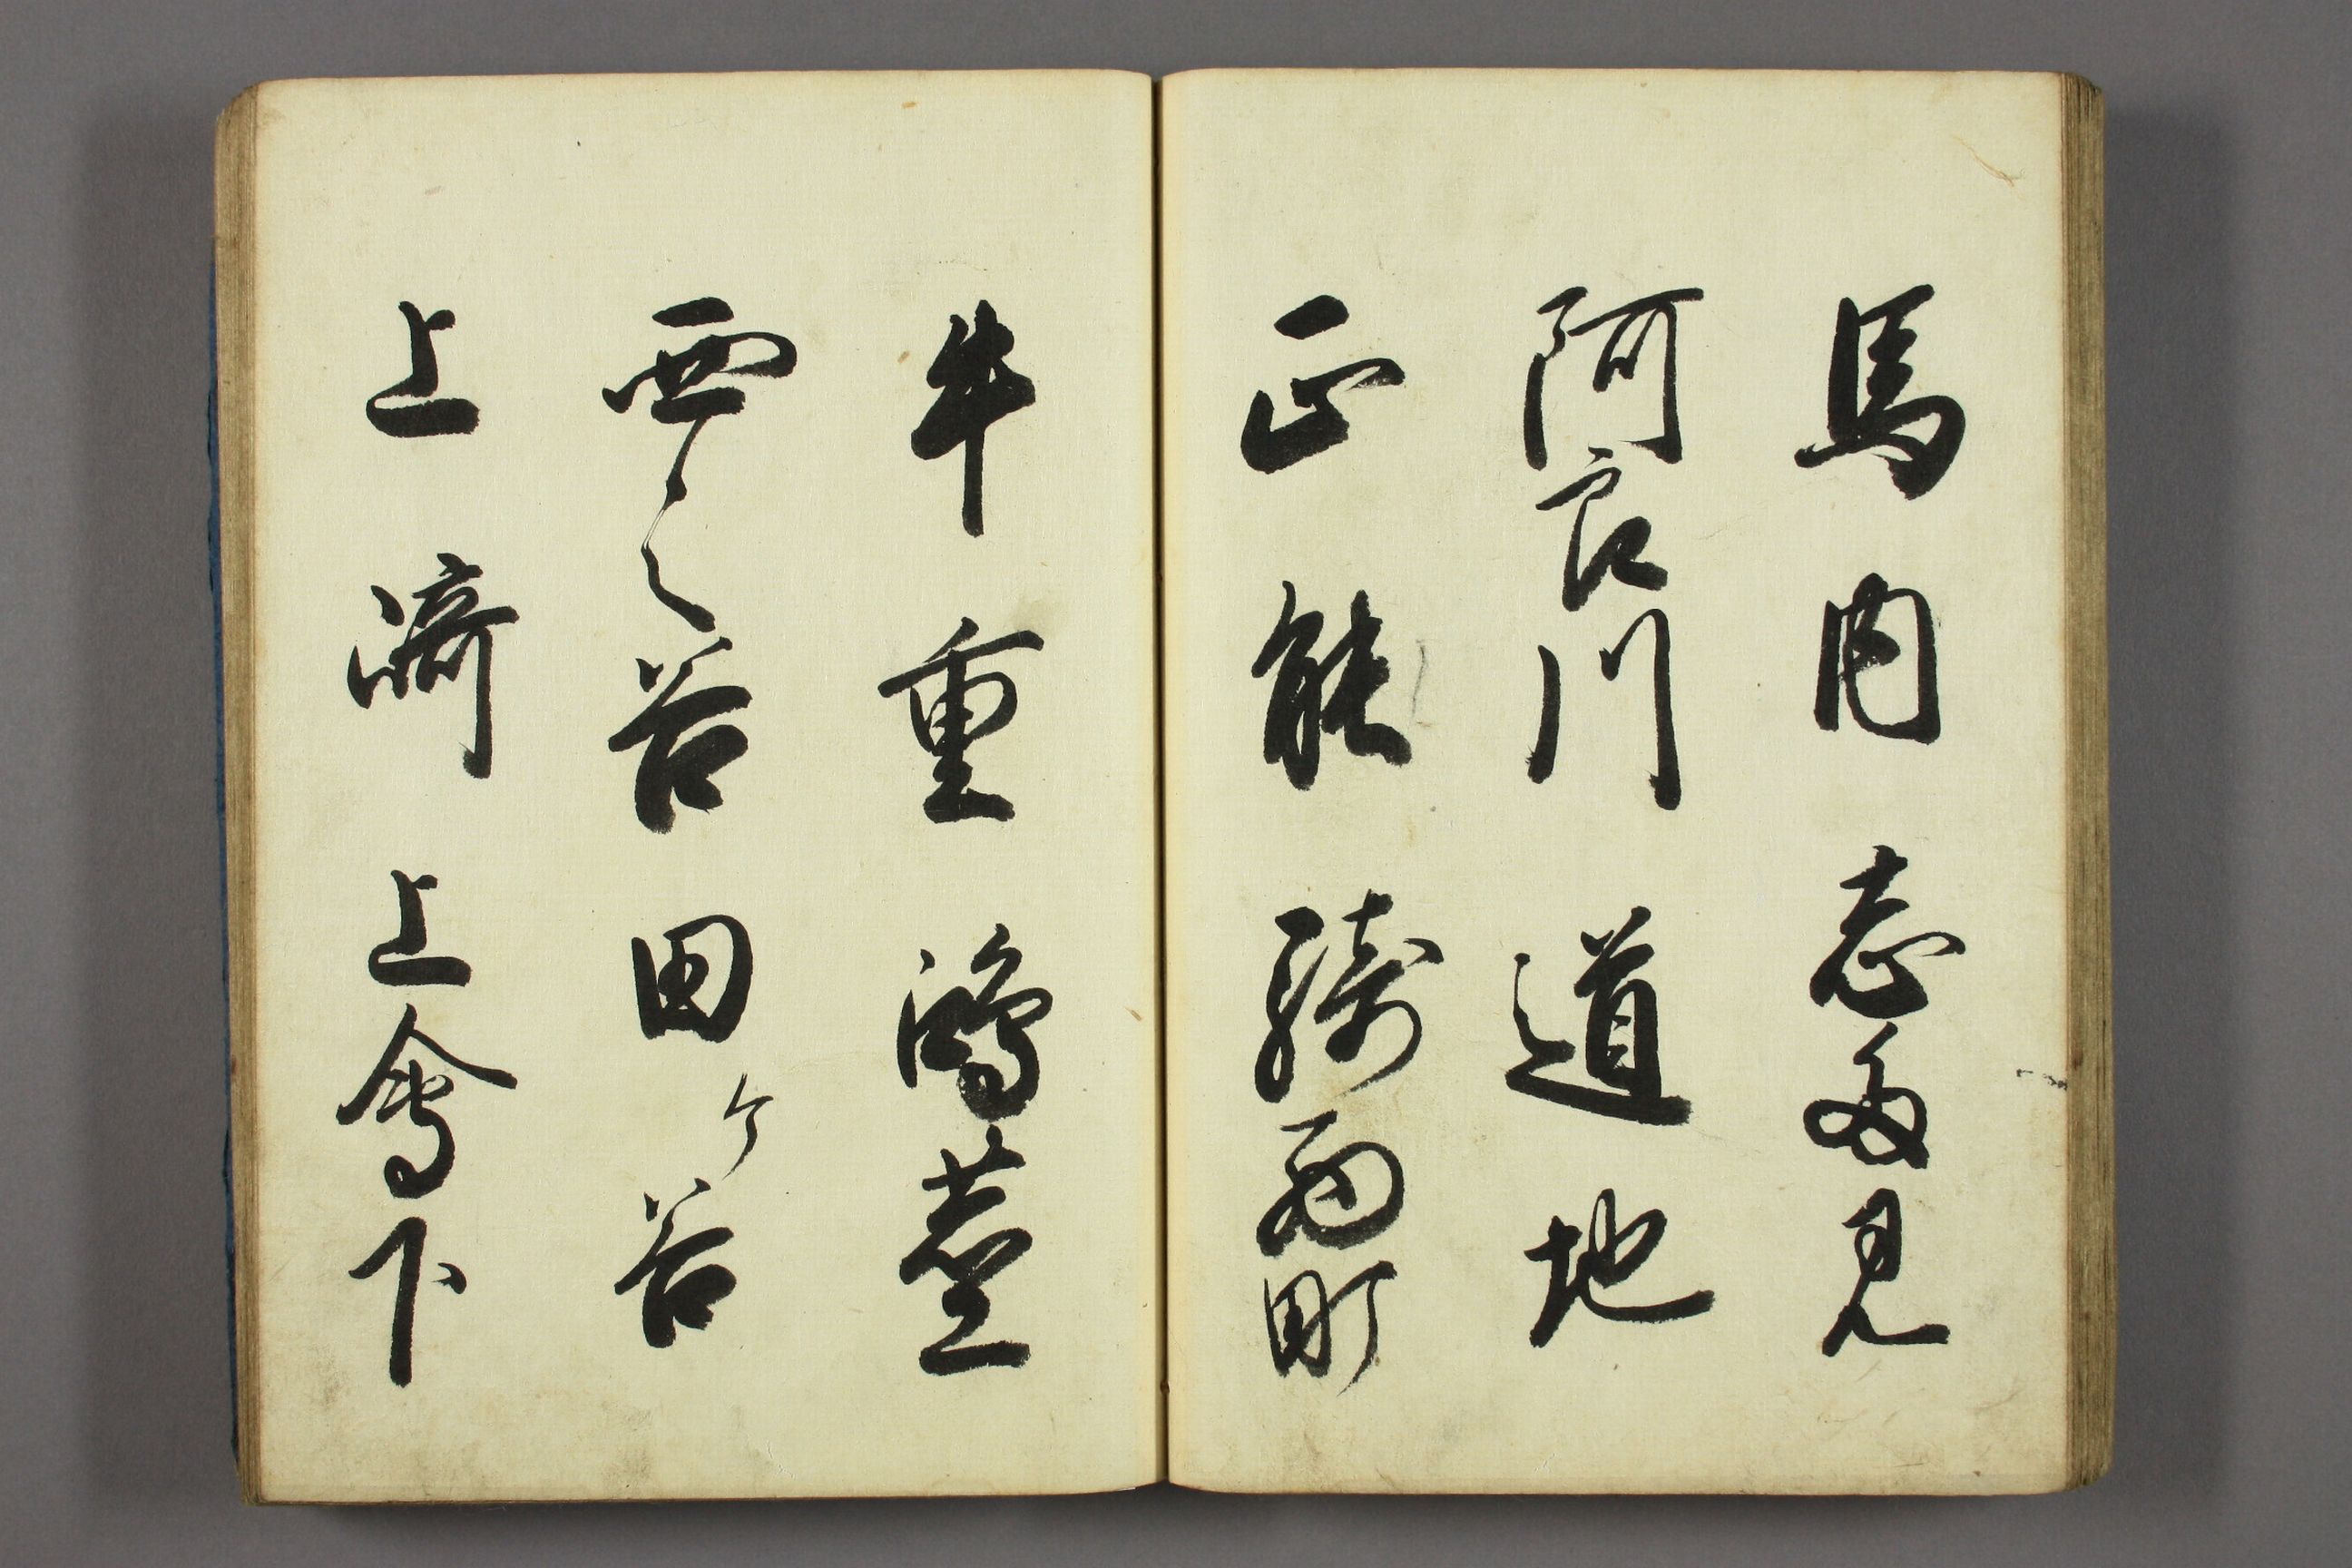 馬内 志多見
阿良川 道地
正能 騎西町
牛重 鴻莖
西之谷 田ヶ谷
上崎 上會下